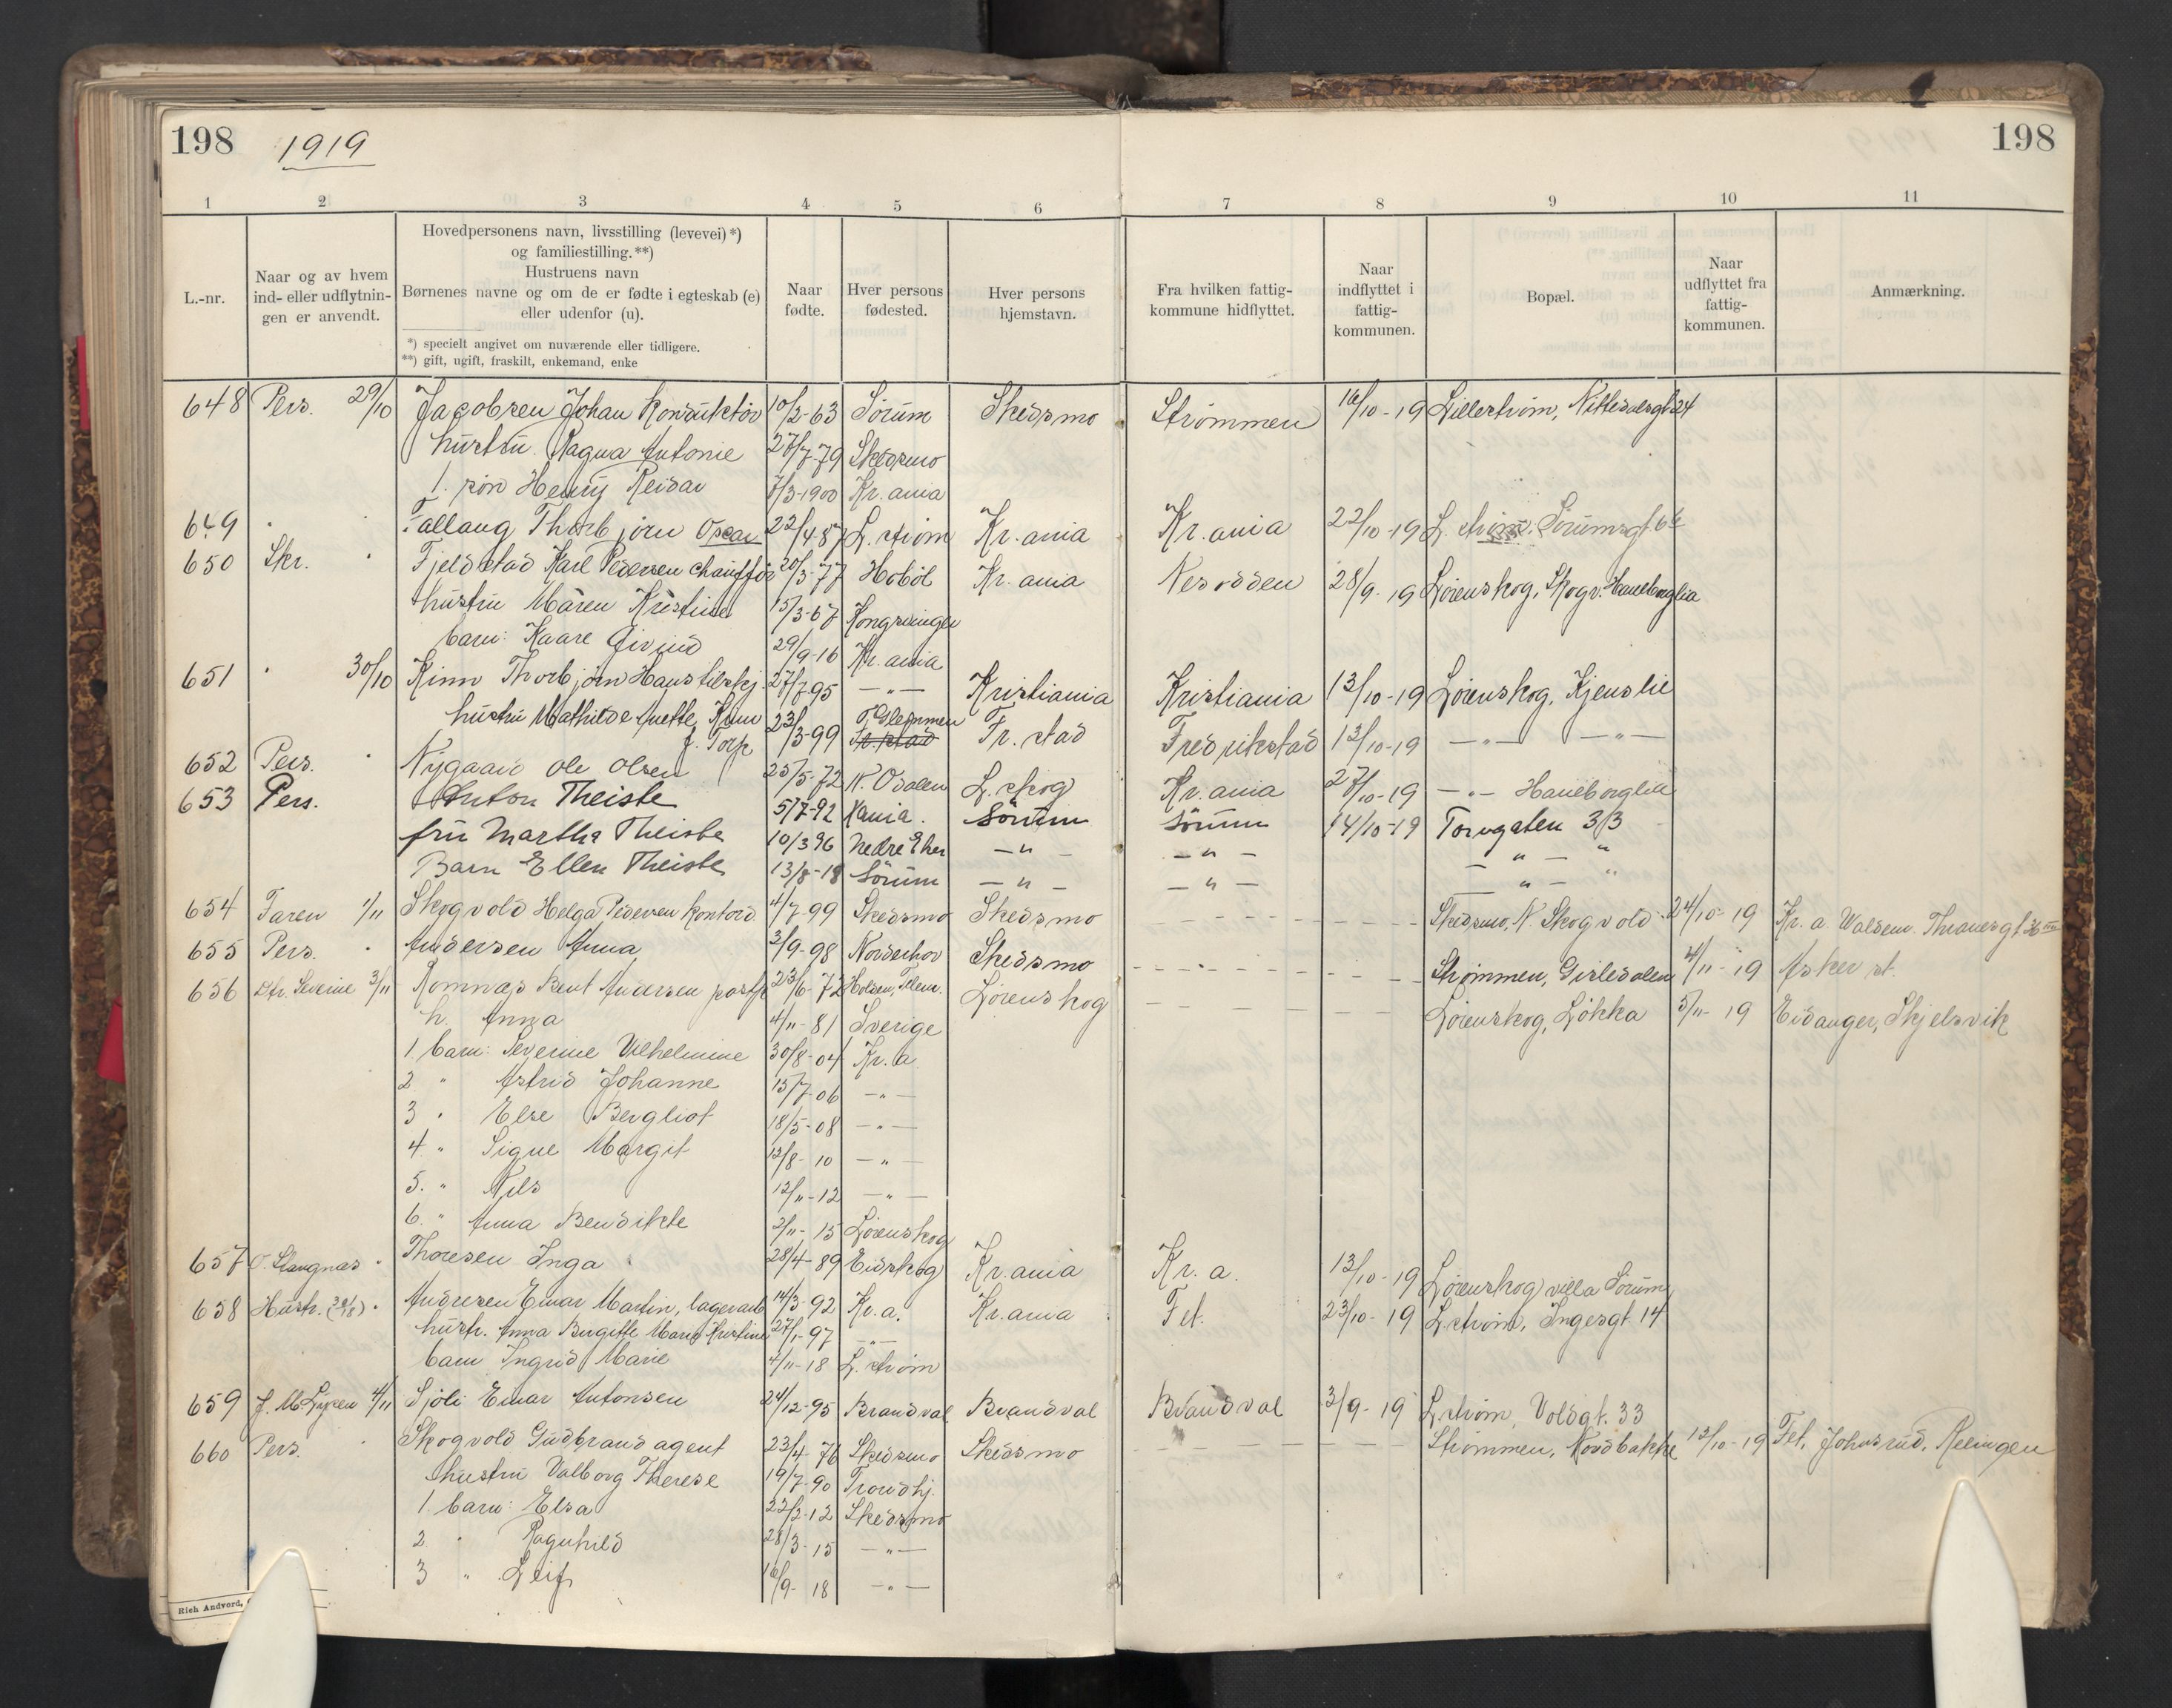 198 1919 198
1 2 3 4 5 6 7 8 9 10 11
L.-nr.
Naar og av hvem
ind- eller udflytnin-
gen er anvendt.
Hovedpersonens navn, livsstilling (levevei) *)
og familiestilling. **)
Hustruens navn
Børnenes navne og om de er fødte i egteskab (e)
eller udenfor (u).
*) specielt angivet om nuværende eller tidligere.
**) gift, ugift, fraskilt, enkemand, enke
Naar
fødte.
Hver persons
fødested.
Hver persons
hjemstavn.
Fra hvilken fattig-
kommune hidflyttet.
Naar
indflyttet i
fattig-
kommunen.
Bopæl.
Naar
udflyttet fra
fattig-
kommunen.
Anmærkning.
648 Pers. 29/10 Jacobsen Johan Konduktør 10/2-63 Sørum Skedsmo Strømmen 16/10-19 Lillestrøm, Nittedalsgt 24
hustru Ragna Antonie 27/7-79 Skedsmo
1. søn Henry Reidar 7/3-1900 Kr.ania
649 " Fallang Thorbjørn Oscar 22/4-87 L.strøm Kr.ania Kr.ania 22/10-19 L.strøm. Sørumsgt
650 Skr. " Fjeldstad Karl Pedersen chauffør 20/3-77 Hobøl Kr.ania Nesodden 28/9-19 Lørenskog, Skogv. Haneborglia
hustru Maren Kristine 15/3-67 Kongsvinger
barn: Kaare Eivind 29/9-16 Kr.ania
651 " 30/10 Kinn Thorbjørn Hans 27/7-95 —"— Kristiania Kristiania 13/10-19 Lørenskog, Kjenslie
hustru Mathilde Anette Kinn 23/3-99 Glemmen Fr.stad Fredrikstad 13/10-19 —"— —"—
f. Torp Fr.stad
652 Pers. " Nygaard Ole Olsen 25/5-72 N. Odalen L.skog Kr.ania 27/10-19 —"— Haneborglia
653 Pers. Anton Theiste 5/7-92 Kania. Sörum Sörum 14/10-19 Torvgaten 33
fru Martha Theiste 10/3 96 Nedre Eker —"— —"— —"— "
Barn Ellen Theiste 13/8-18 Sörum —"— —"— —"— "
654 Faren 1/11 Skogvold Helga Pedersen kontord 4/7-99 Skedsmo Skedsmo Skedsmo, N. Skogvold 24/10-19 Kr.a. Waldem. Thranesgt.
655 Pers. " Andersen Anna 3/9-98 Norderhov Skedsmo Strømmen, 4/11-19 Asker st.
656 Dtr. Severine 3/11 Romnæs Bent Andersen 23/6-72 Holsen, Telem. Lørenskog Lørenskog, Løkka 5/11-19 Eidanger, Skjelsvik
h. Anna 4/11-81 Sverige
1 barn: Severine Vilhelmine 30/8-04 Kr.a.
2 " Astrid Johanne 15/7-06 —"—
3 " Else Bergliot 18/5-08 —"—
4 " Signe Margit 12/8-10 —"—
5. " Nils 12/11-12 —"—
6. " Anna Bendikte 2/11-15 Lørenskog
657 O. Stangnæs " Thoresen Inga 28/4-89 Eidskog Kr.ania Kr.a. 13/10-19 Lørenskog villa Sørum
658 Hustr. " Andresen Einar Martin, lagerarb 14/3-92 Kr.a. Kr.ania Fet. 23/10-19 L.strøm, Ingesgt. 14
hustr. Anna Birgitte Marie Kristine 27/1-97 —"—
barn Ingrid Marie 4/11-18 L.strøm
659 J. M. 4/11 Sjøli Einar Antonsen 24/12-95 Brandval Brandval Brandval 3/9-19 L.strøm, Voldgt. 33
660 Pers. " Skogvold Gudbrand agent 23/4-76 Skedsmo Skedsmo Strømmen, Nordbakke 13/10-19 Fet, Johnsrud, Relingen
hustru Valborg Therese 19/7-90 Trondhj.
1 barn: Elsa 22/2-12 Skedsmo
2 " Ragnhild 28/3-15 —"—
3 " Leif 16/9-18 —"—
Rich Andvord,